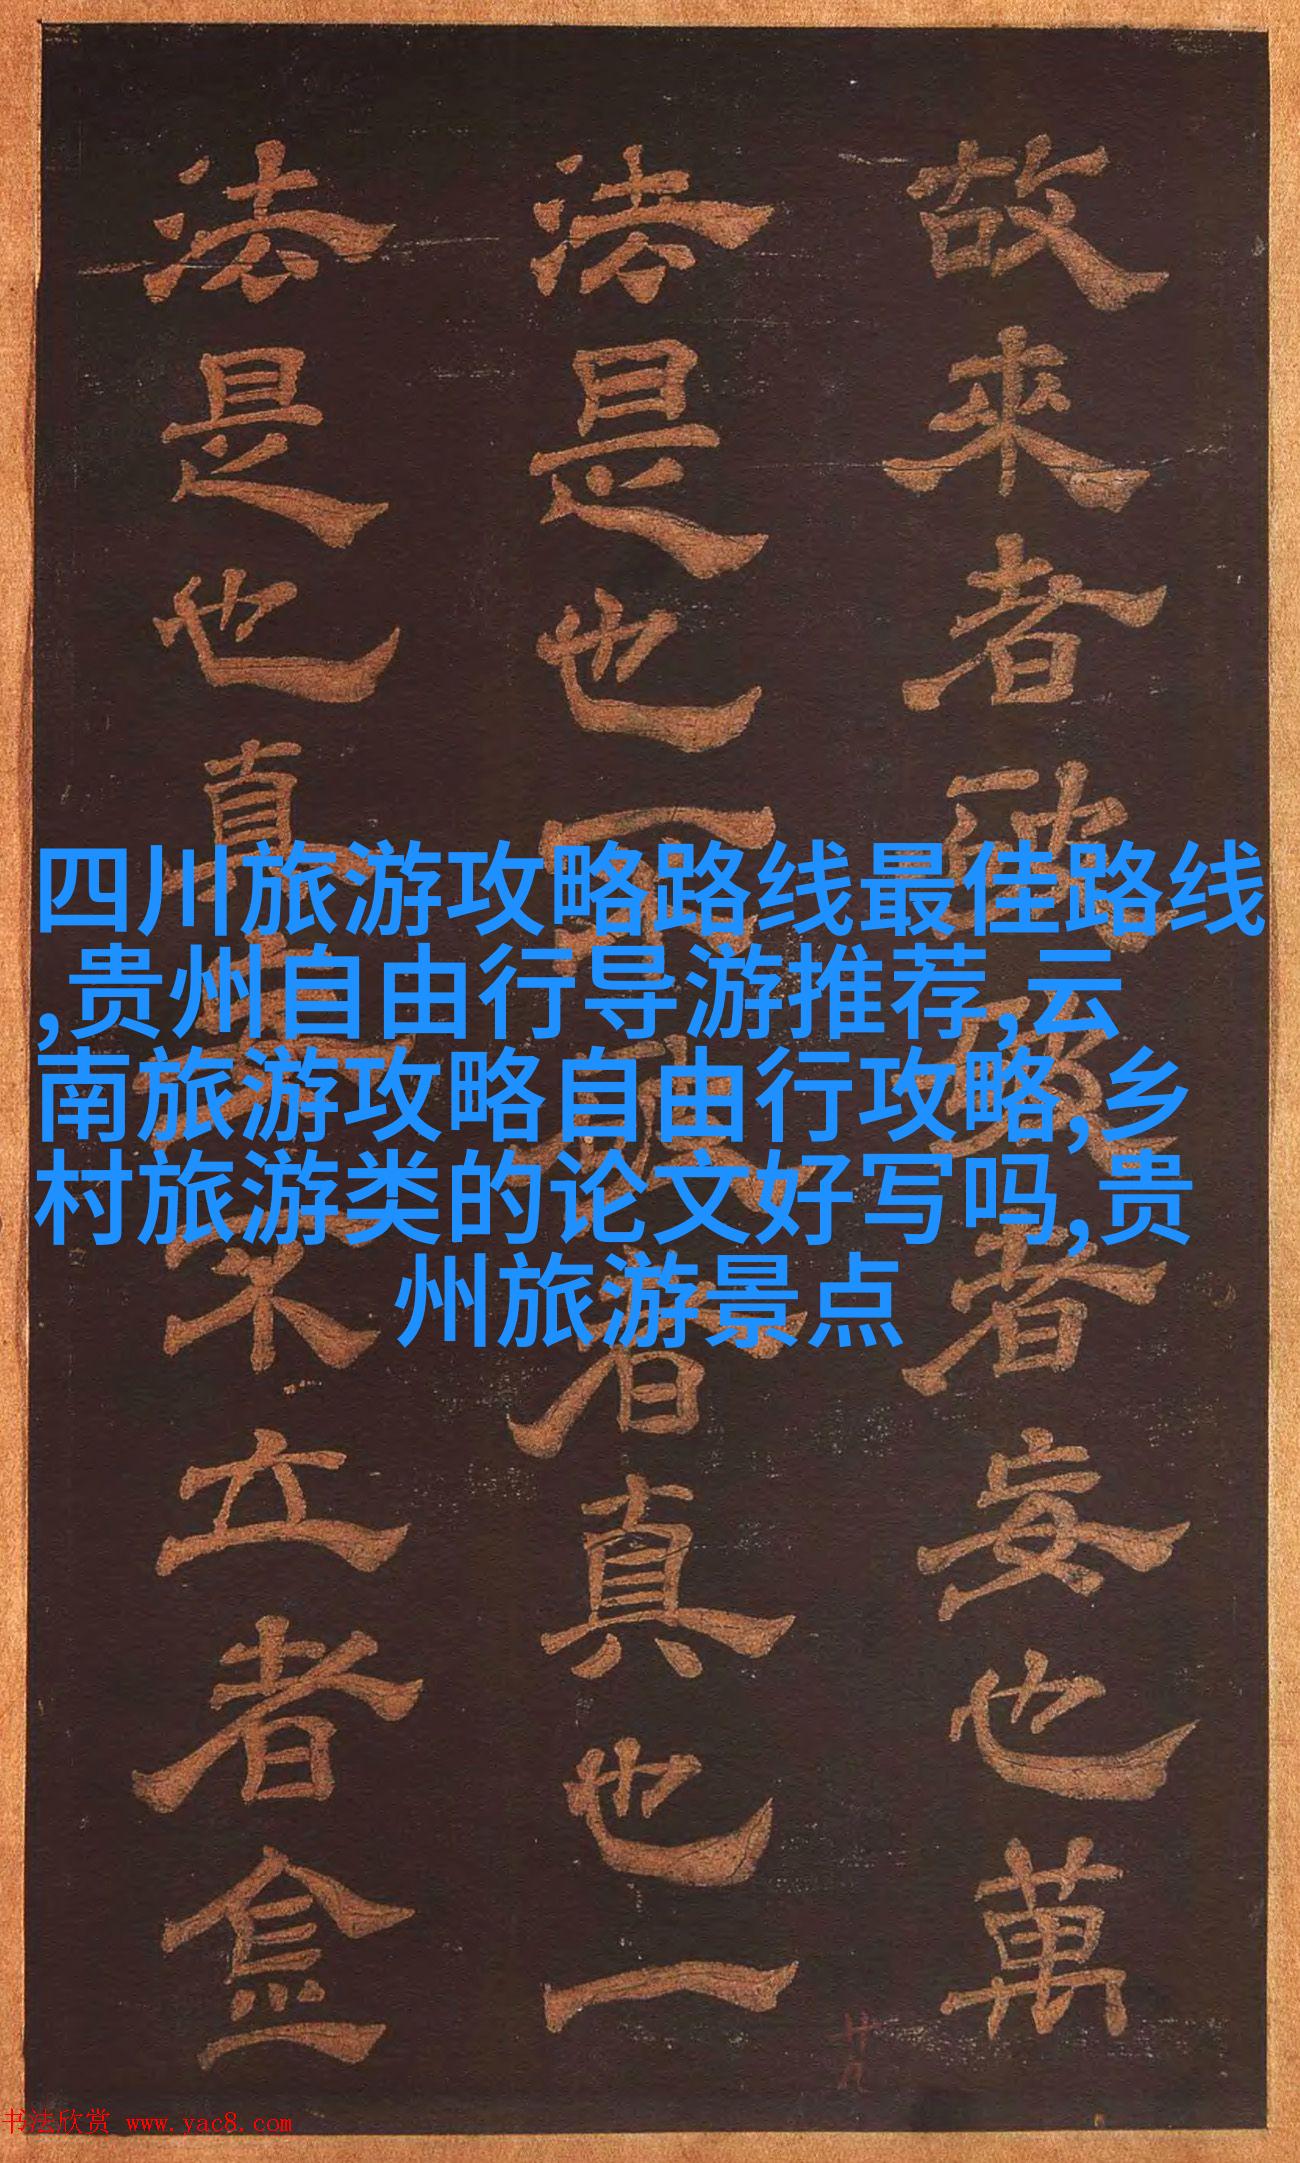 四川旅游攻略路线最佳路线
,贵州自由行导游推荐,云
南旅游攻略自由行攻略,乡
村旅游类的论文好写吗,贵
州旅游景点
故來者者妄也萬
法是也者真也一
法是也真不立者
书法欣赏 www.yac8.com